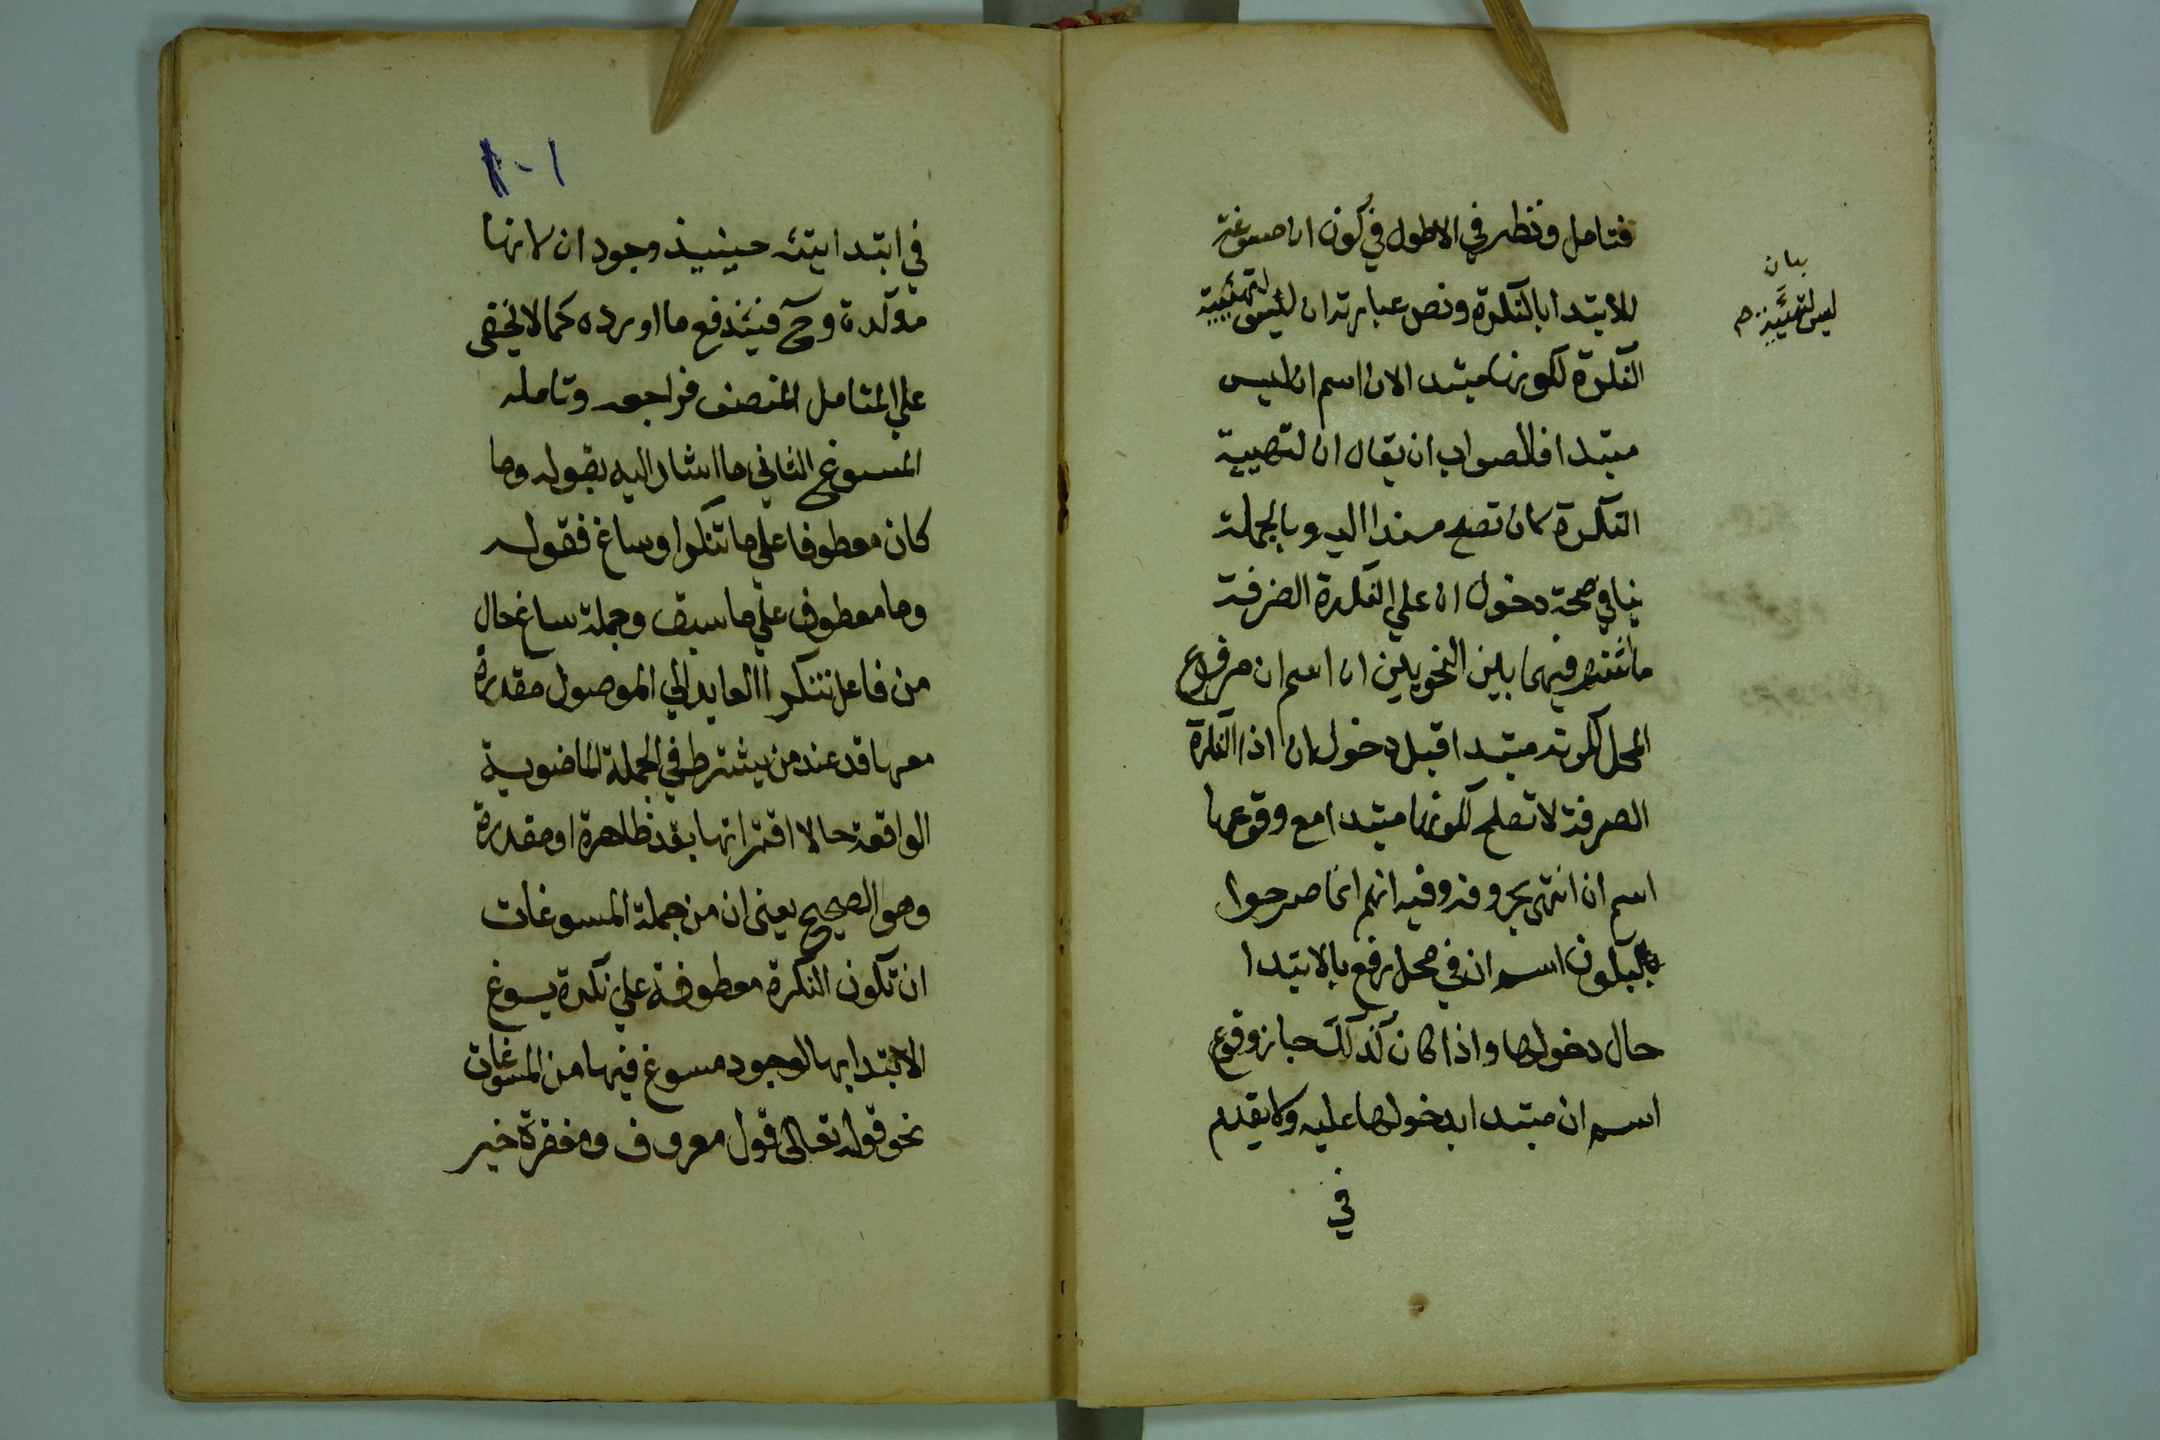 فتامل ونظر في الاطول في كون ان مسوغة
للابتدا بالنكرة ونص عبارته ان ليس لتهيئة
النكرة لكونها مبتد الان اسم ان ليس
مبتدا فالصواب ان يقال ان لتهيية
النكرة لان تصلح مسندا اليه وبالجملة
ينافي صحة دخول ان علي النكرة الصرفة
ما اشتهر فيما بين النحويين ان اسم ان مرفوع
المحل لكونه مبتدا قبل دخول ان اذ النكرة
الصرفة لا تصلح لكونها مبتدا مع وقوعها
اسم ان انتهى بحروفه وفيه انهم انما صرحوا
بكون اسم ان في محل رفع بالابتدا
حال دخولها واذا كان كذلك جاز وقوع
اسم ان مبتدا بدخولها عليه ولا يقدم
في
بيان
ليس لتهيئة م
١٠٨
في ابتدايته حينيذ وجود ان لانها
مؤكدة وح فيندفع ما اورده كما لا يخفى
علي المتامل المنصف فراجعه وتامله
المسوغ الثاني ما اشار اليه بقوله وما
كان معطوفا علي ما تنكرا وساغ فقوله
وما معطوف علي ما سبق وجملة ساغ حال
من فاعل تنكر االعايد الي الموصول مقدرة
معها قد عند من يشترط في الجملة الماضوية
الواقعة حالا اقترانها بقد ظاهرة او مقدرة
وهو الصحيح يعني ان من جملة المسوغات
ان تكون النكرة معطوفة علي نكرة يسوغ
الابتدا بها لوجود مسوغ فيها من المسوغات
نحو قوله تعالى قول معروف ومغفرة خير